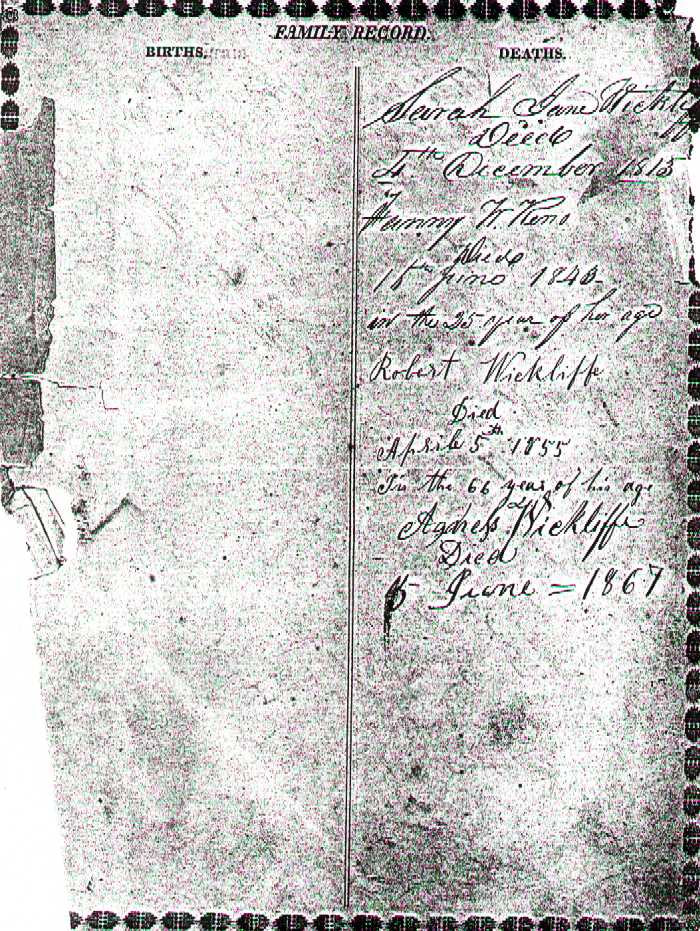 FAMILY RECORD.
BIRTHS.
DEATHS.
Sarah Jane
Died
4th December 1813
Fanny W. Reno
Died
June 1840
in the 25 year of her age
Robert Wickliffe
Died
Aprile 5th 1855
In the 66 year of his age
Agness Wickliffe
Died
June = 1867